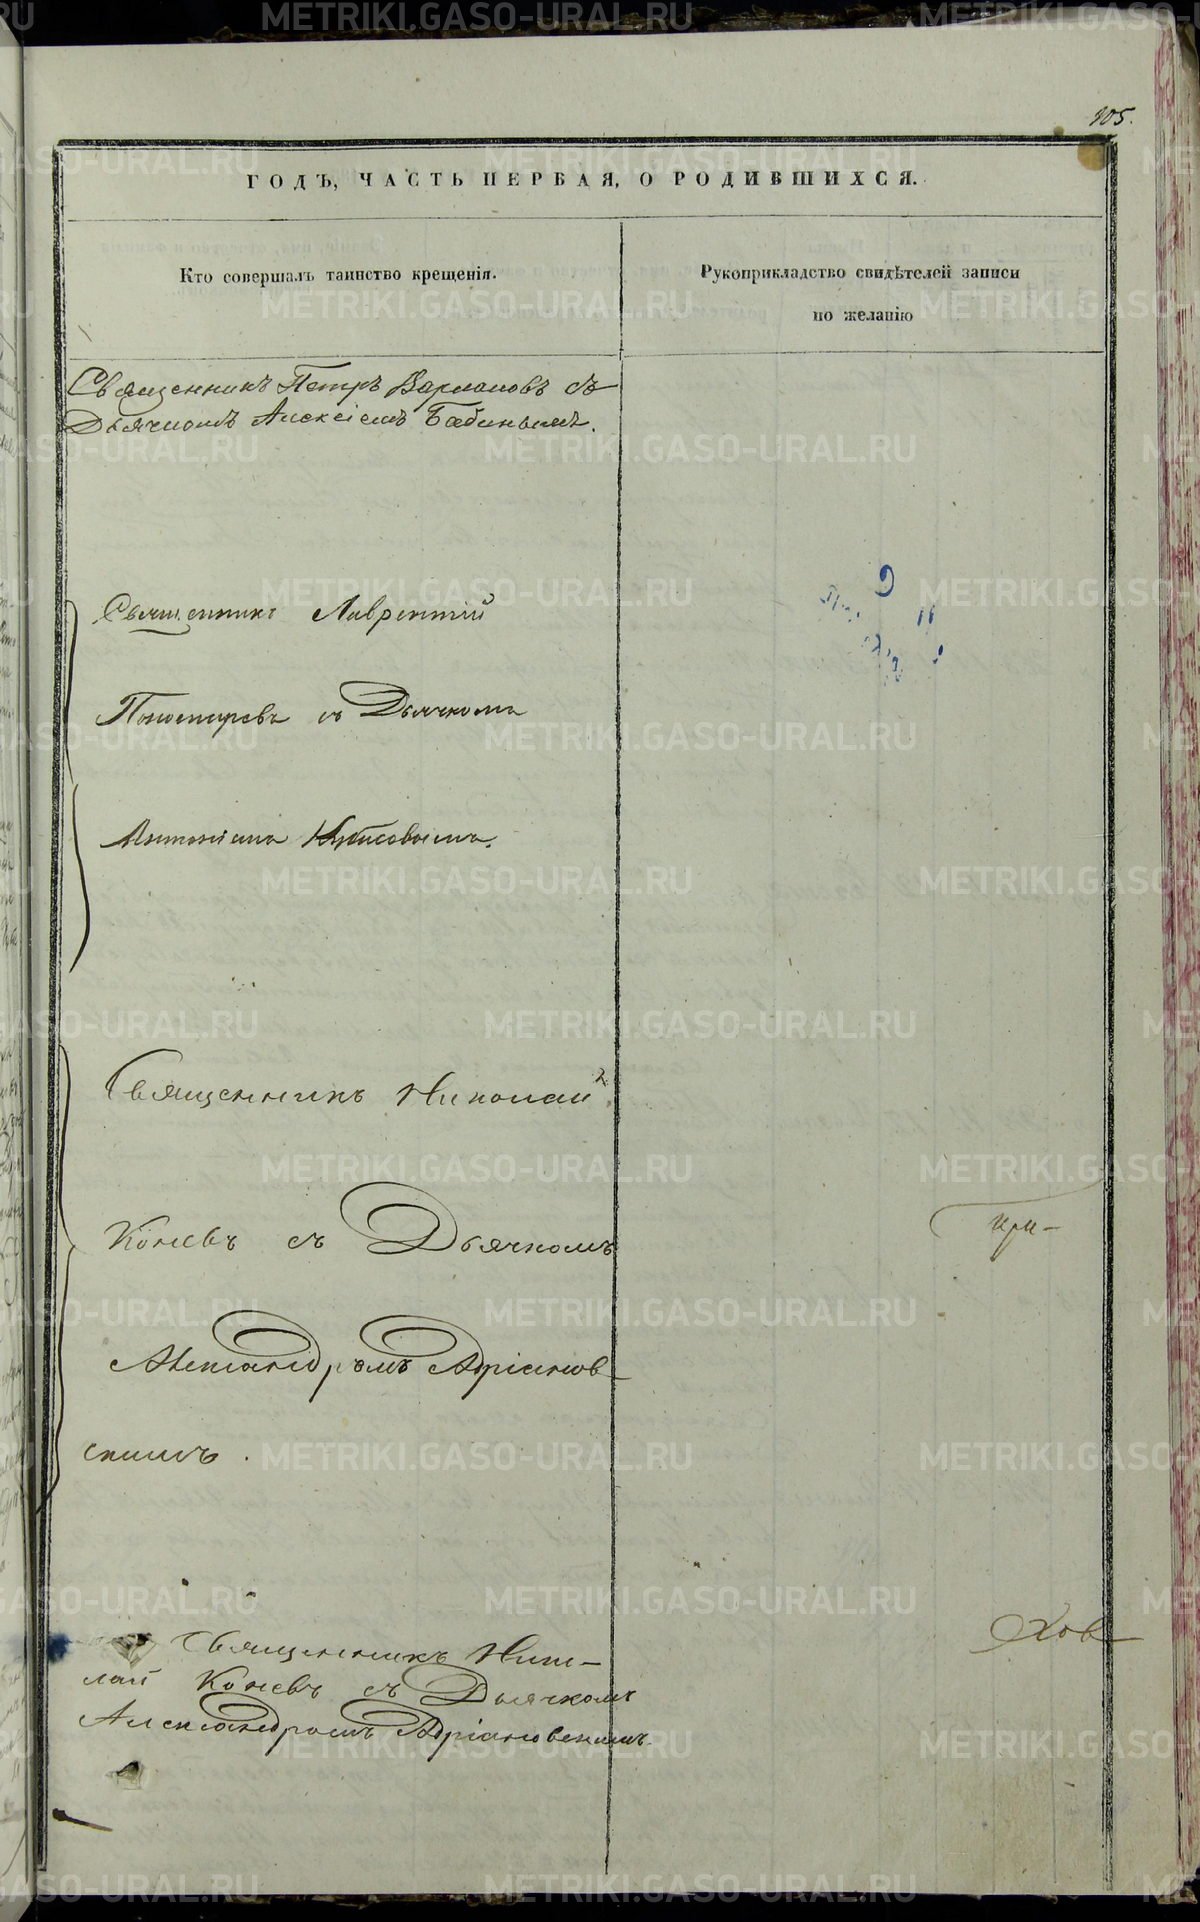 105.
ГОДЪ, ЧАСТЬ ПЕРВАЯ, О РОДИВШИХСЯ.
Кто совершалъ таинство крещенія.
Рукоприкладство свидѣтелей записи
по желанію
Священникъ Петръ Варлаковъ съ
Дьячкомъ Алексіемъ Бабинымъ.
Священникъ Лаврентій
Пономаревъ съ Дьячкомъ
Антоніемъ
Священникъ Николай
Коневъ съ Дьячкомъ
при-
Александромъ Адріанов-
скимъ.
Хов
Священникъ Нико-
лай Коневъ съ Дьячкомъ
Александромъ Адріановскимъ.
METRIKI.GASO-URAL.RU